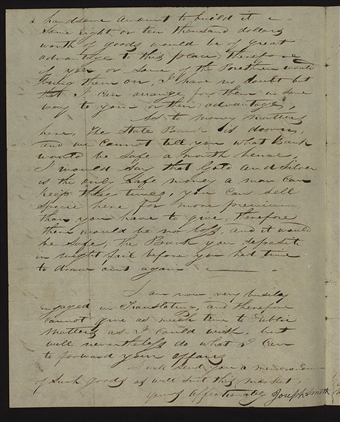 a handsome amount to build it
some eight or ten thousand dollars
worth of goods would be of great
advantage to this place, therefore
if you or some of the Brethren would
that I can arrange for them in some
way to your or their advantage,
As to money matters
here, the State Bank is down,
and we cannot tell you what Bank
would be safe a month hence
I would say that Gold and Silver
is the only safe money a man can
keep these times, you can sell
specie here for more premium
than you have to give, therefore
there would be no loss, and it would
be safe, the Bank you deposit
in might fail before you had time
to draw out again
I am now very busily
engaged in Translating, and therefore
cannot give as much time to Public
matters as I could wish, but
will nevertheless do what I can
to forward your affairs
I will send you a memorandum
of such goods as will suit this market
Yours affectionately Joseph Smith